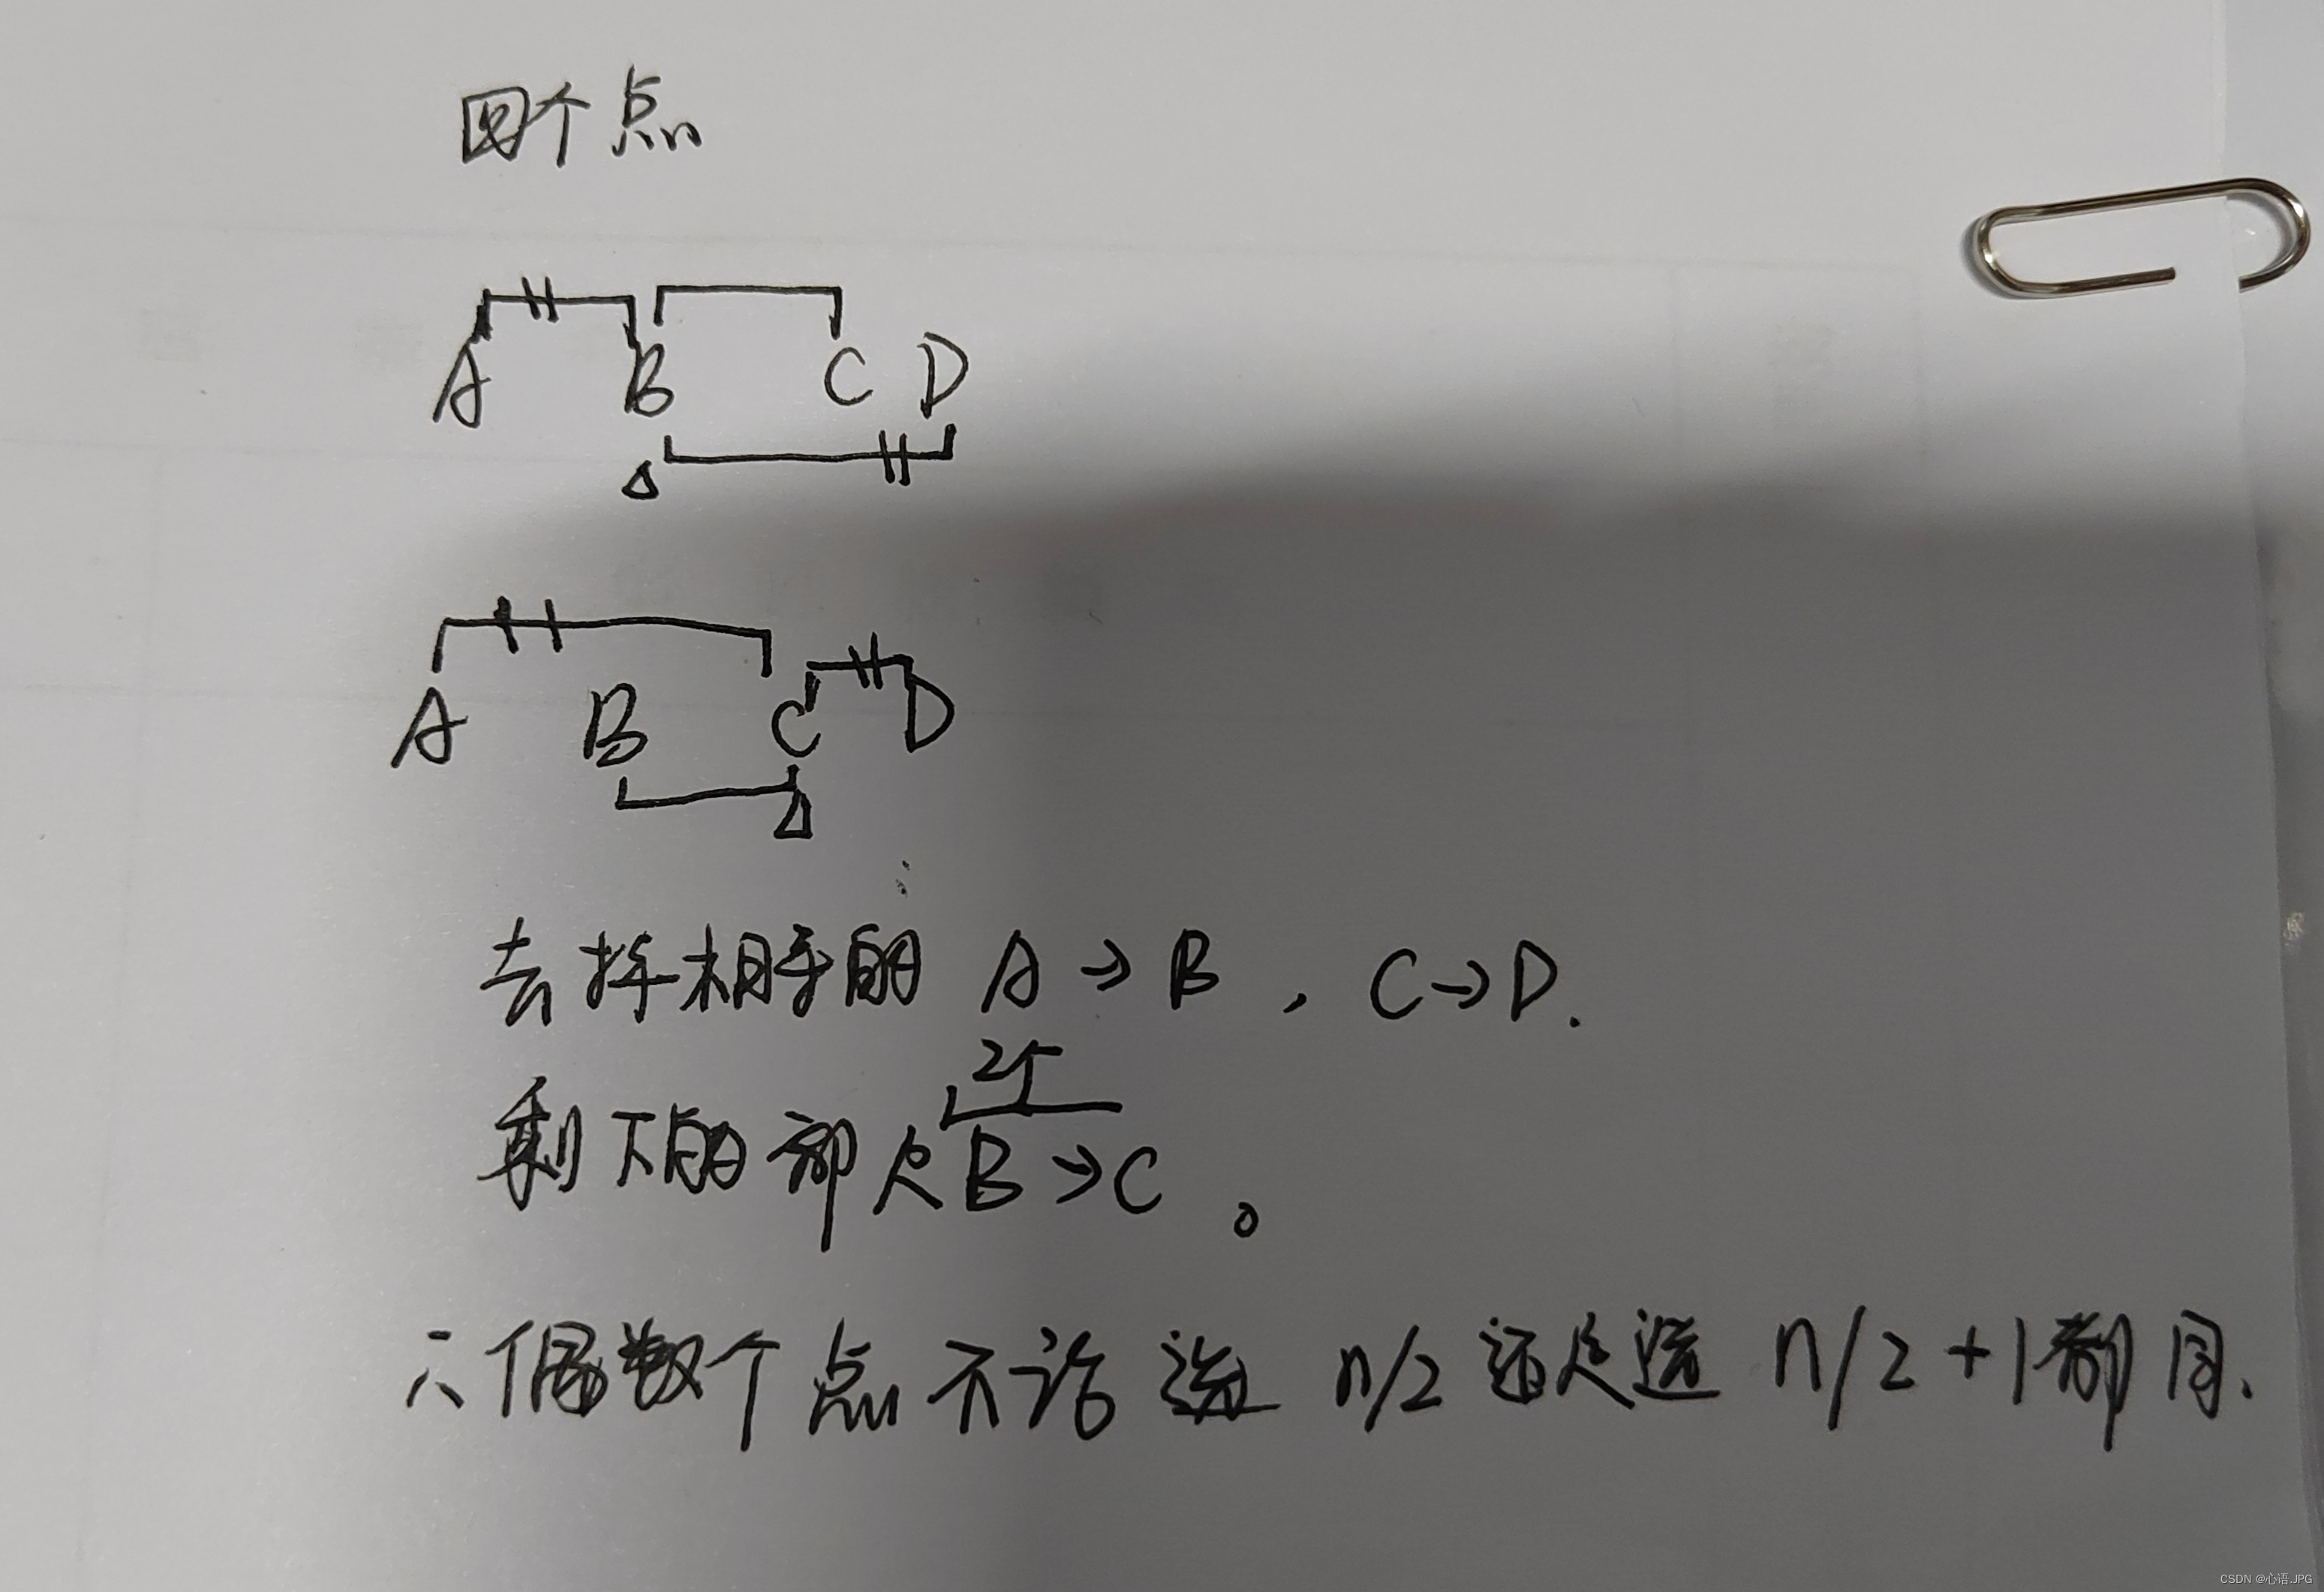 四个点
A B C D
A B C D
去掉相等的 A→B,C→D.
2个
剩下的都是B→C。
∴偶数个点不论选 n/2 还是选 n/2+1都同.
CSDN @心语.JPG